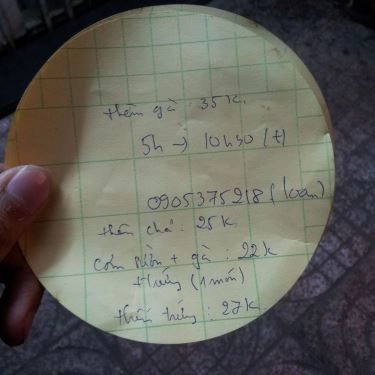 thêm gà : 35k.
5h → 10h30 (t)
0905375218 (loan)
thêm chả : 25k
cơm sườn + gà : 22k
trứng (1 món)
thêm trứng : 27k